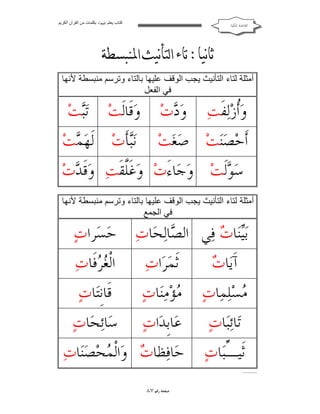 كتاب يعلم تهجيه بكلمات من القرآن الكريم
ثانيا : تاء التأنيث المنبسطة
أمثلة لتاء التأنيث يجب الوقف عليها بالتاء وترسم منبسطة لأنها
في الفعل
وَأُزْلِفَتِ وَدَّتْ وَقَالَتْ تَبَّتْ
أَحْصَنَتْ صَغَتْ نَبَّأَتْ لَهَمَّتْ
سَوَّلَتْ وَجَاءَتْ وَغَلَّقَتِ وَقَدَّتْ
أمثلة لتاء التأنيث يجب الوقف عليها بالتاء وترسم منبسطة لأنها
في الجمع
بَيِّنَاتٌ فِي الصَّالِحَاتِ حَسَراتٍ
آَيَاتٌ ثَمَرَاتِ الْغُرُفَاتِ
مُسْلِمِاتٍ مُؤْمِنَاتٍ قَانِتَاتٍ
تَائِبَاتٍ عَابِدَاتٍ سَائِحَاتٍ
ثَيِّبَاتٍ حَافِظَاتٌ وَالْمُحْصَنَاتِ
صفحه رقم ٨٧